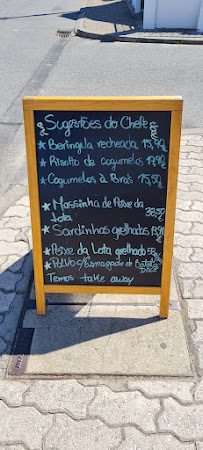 Sugestões do Chefe
★ Beringula recheada 15,90€
★ Risotto de cogumelos 17,90€
★ Cogumelos à Brás 15,50€
★ Massinha de Peixe da
Lota 38,50
★ Sardinhas grelhadas
★ Peixe da Lota grelhado
★ Polvo c/ Esmagada de Batata
doce
Temos take away